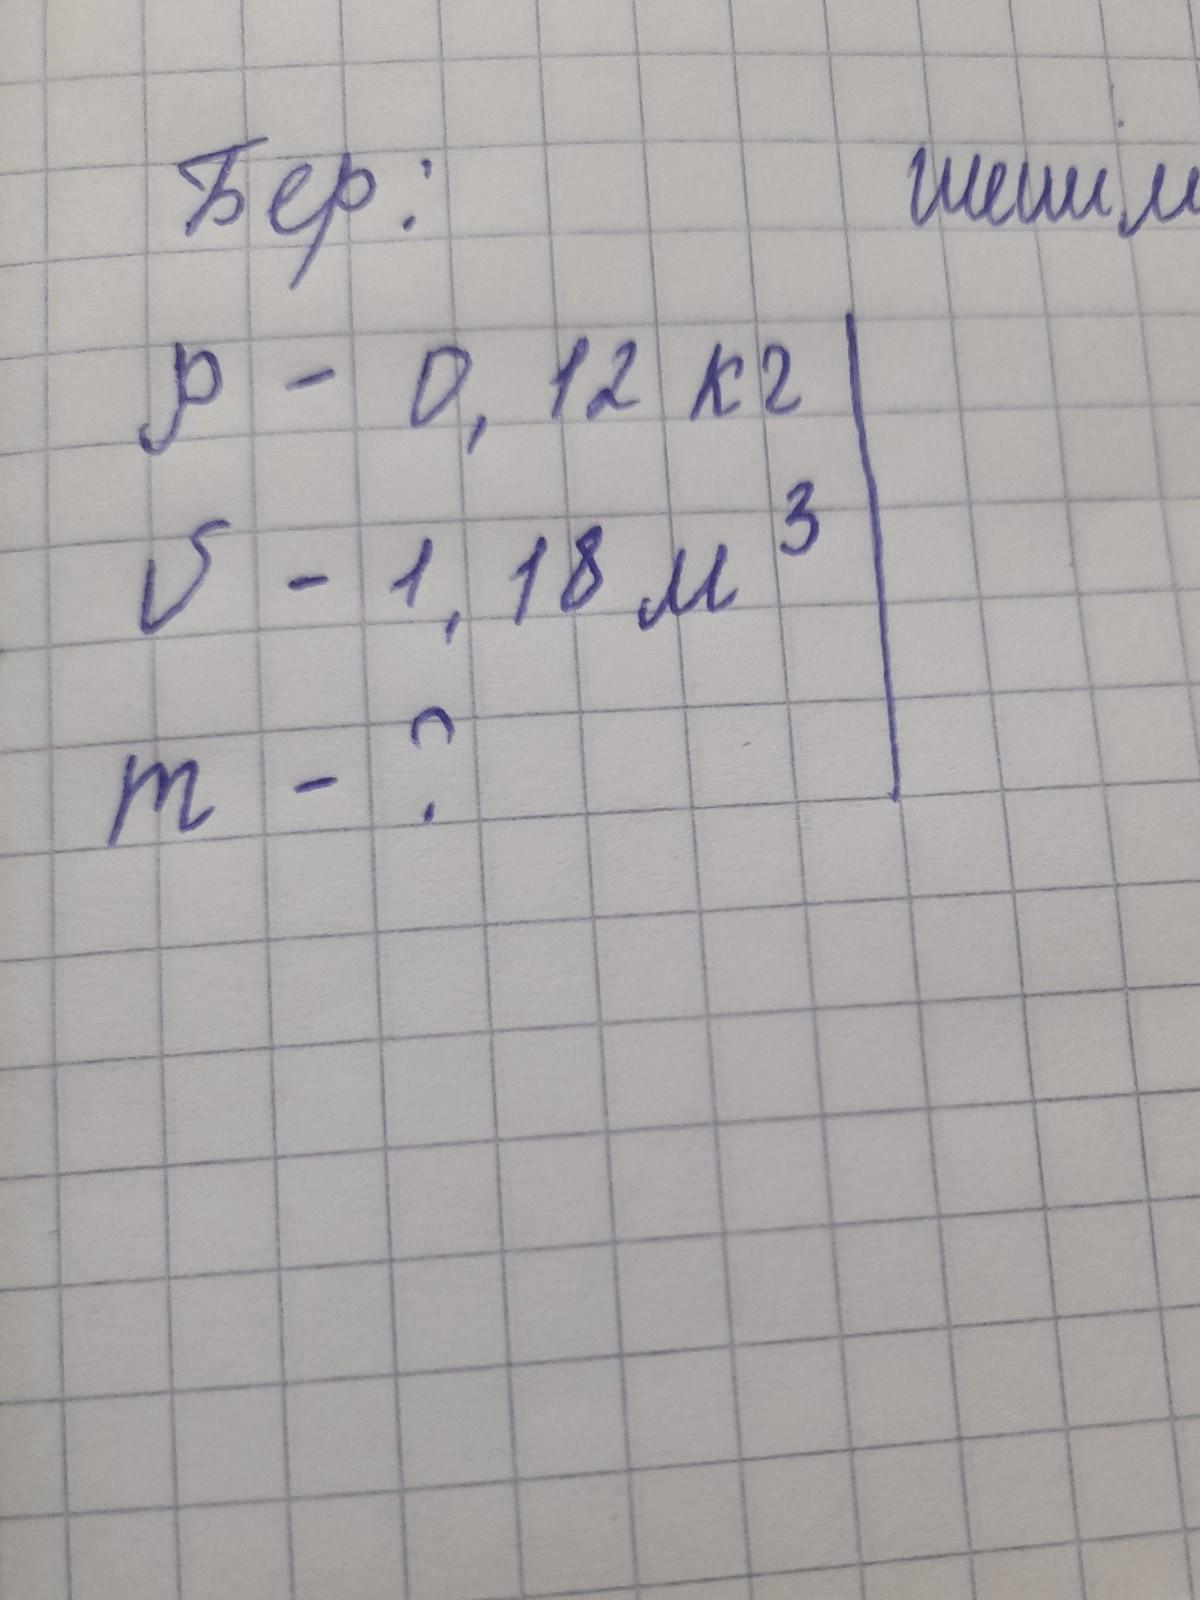 Бер: шешим
p - 0,12 кг
V - 1,18 м³
m - ?